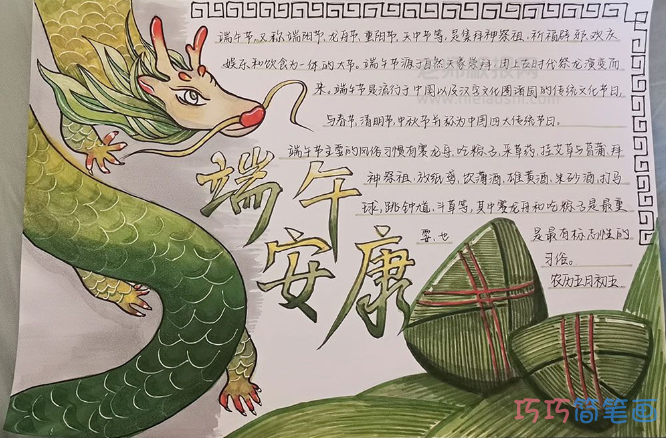 端午节,又称端阳节、龙舟节、重阳节、天中节等,是集拜神祭祖、祈福辟邪、欢庆
娱乐和饮食为一体的大节。端午节源于自然天象崇拜,由上古时代祭龙演变而
来。端午节是流行于中国以及汉字文化圈诸国的传统文化节日,
与春节、清明节、中秋节并称为中国四大传统节日。
端午节主要的风俗习惯有赛龙舟、吃粽子、采草药、挂艾草与菖蒲、拜
神祭祖、放纸鸢、饮蒲酒、雄黄酒、朱砂酒、打马
球、跳钟馗、斗草等,其中赛龙舟和吃粽子是最重
要,也
是最有标志性的
习俗。
农历五月初五
端午
安康
巧巧简笔画